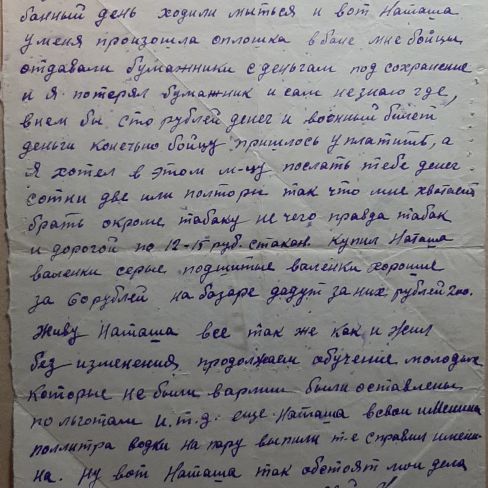 банный день ходили мыться и вот Наташа
у меня произошла оплошка в бане мне бойцы
отдавали бумажники с деньгам под сохранение
и я потерял бумажник и сам незнаю где,
в нем бы сто рублей денег и военный билет
деньги конечно бойцу пришлось уплатить, а
Я хотел в этом м-цу послать тебе денег
сотни две или полторы так что мне хватает
брать окроме табаку не чего правда табак
и дорогой по 12-15 руб. стакан. Купил Наташа
валенки серые подшитые валенки хорошие
за 60 рублей на базаре дадут за них рублей 200.
Живу Наташа все так же как и жил
без изменения продолжаем обучение молодых
которые не были в армии были оставлены
по льготам и.т.д. еще Наташа в свои именины
поллитра водки на пару выпили т-е справил имени-
на. Ну вот Наташа так обстоят мои дела